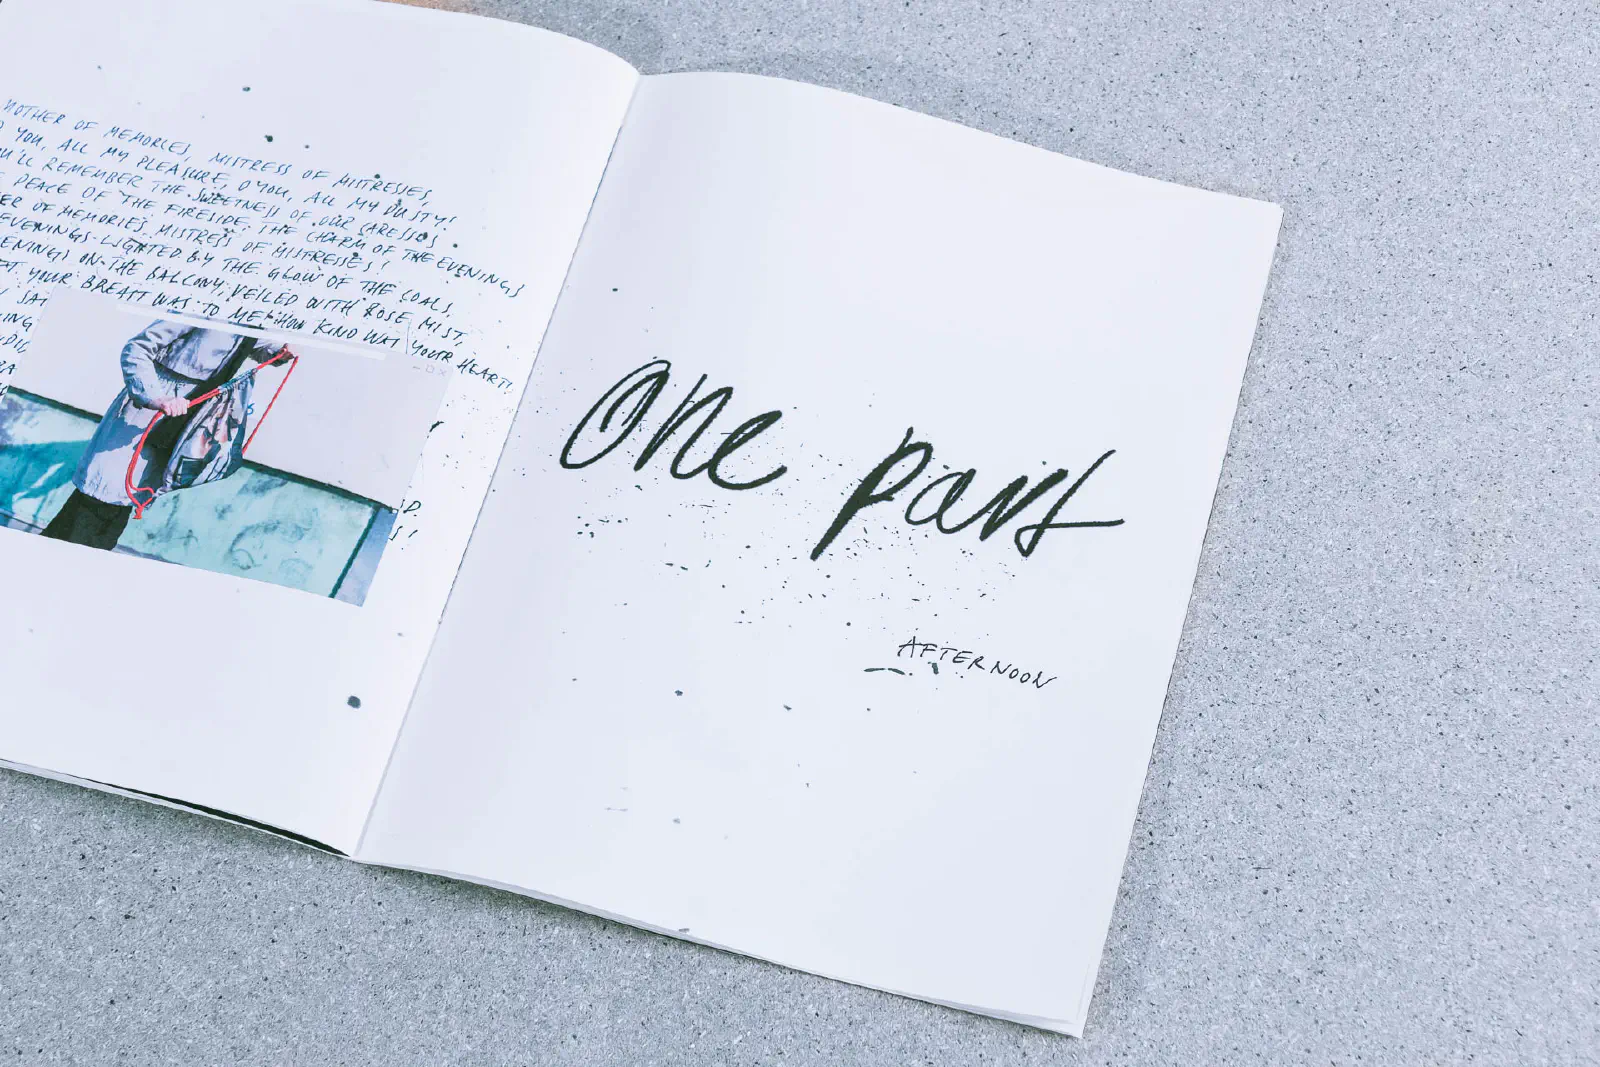 MOTHER OF MEMORIES, MISTRESS OF MISTRESSES,
YOU, ALL MY PLEASURE, O YOU, ALL MY DUSTY!
REMEMBER THE SWEETNESS OF OUR CARESSES.
PEACE OF THE FIRESIDE. THE CHARM OF THE EVENINGS
OF MEMORIES, MISTRESS OF MISTRESSES!
EVENINGS LIGHTED BY THE GLOW OF THE COALS,
ON THE BALCONY, VEILED WITH ROSE MIST,
YOUR BREAST WAS TO ME! HOW KIND WAS YOUR HEART!
One part
AFTERNOON